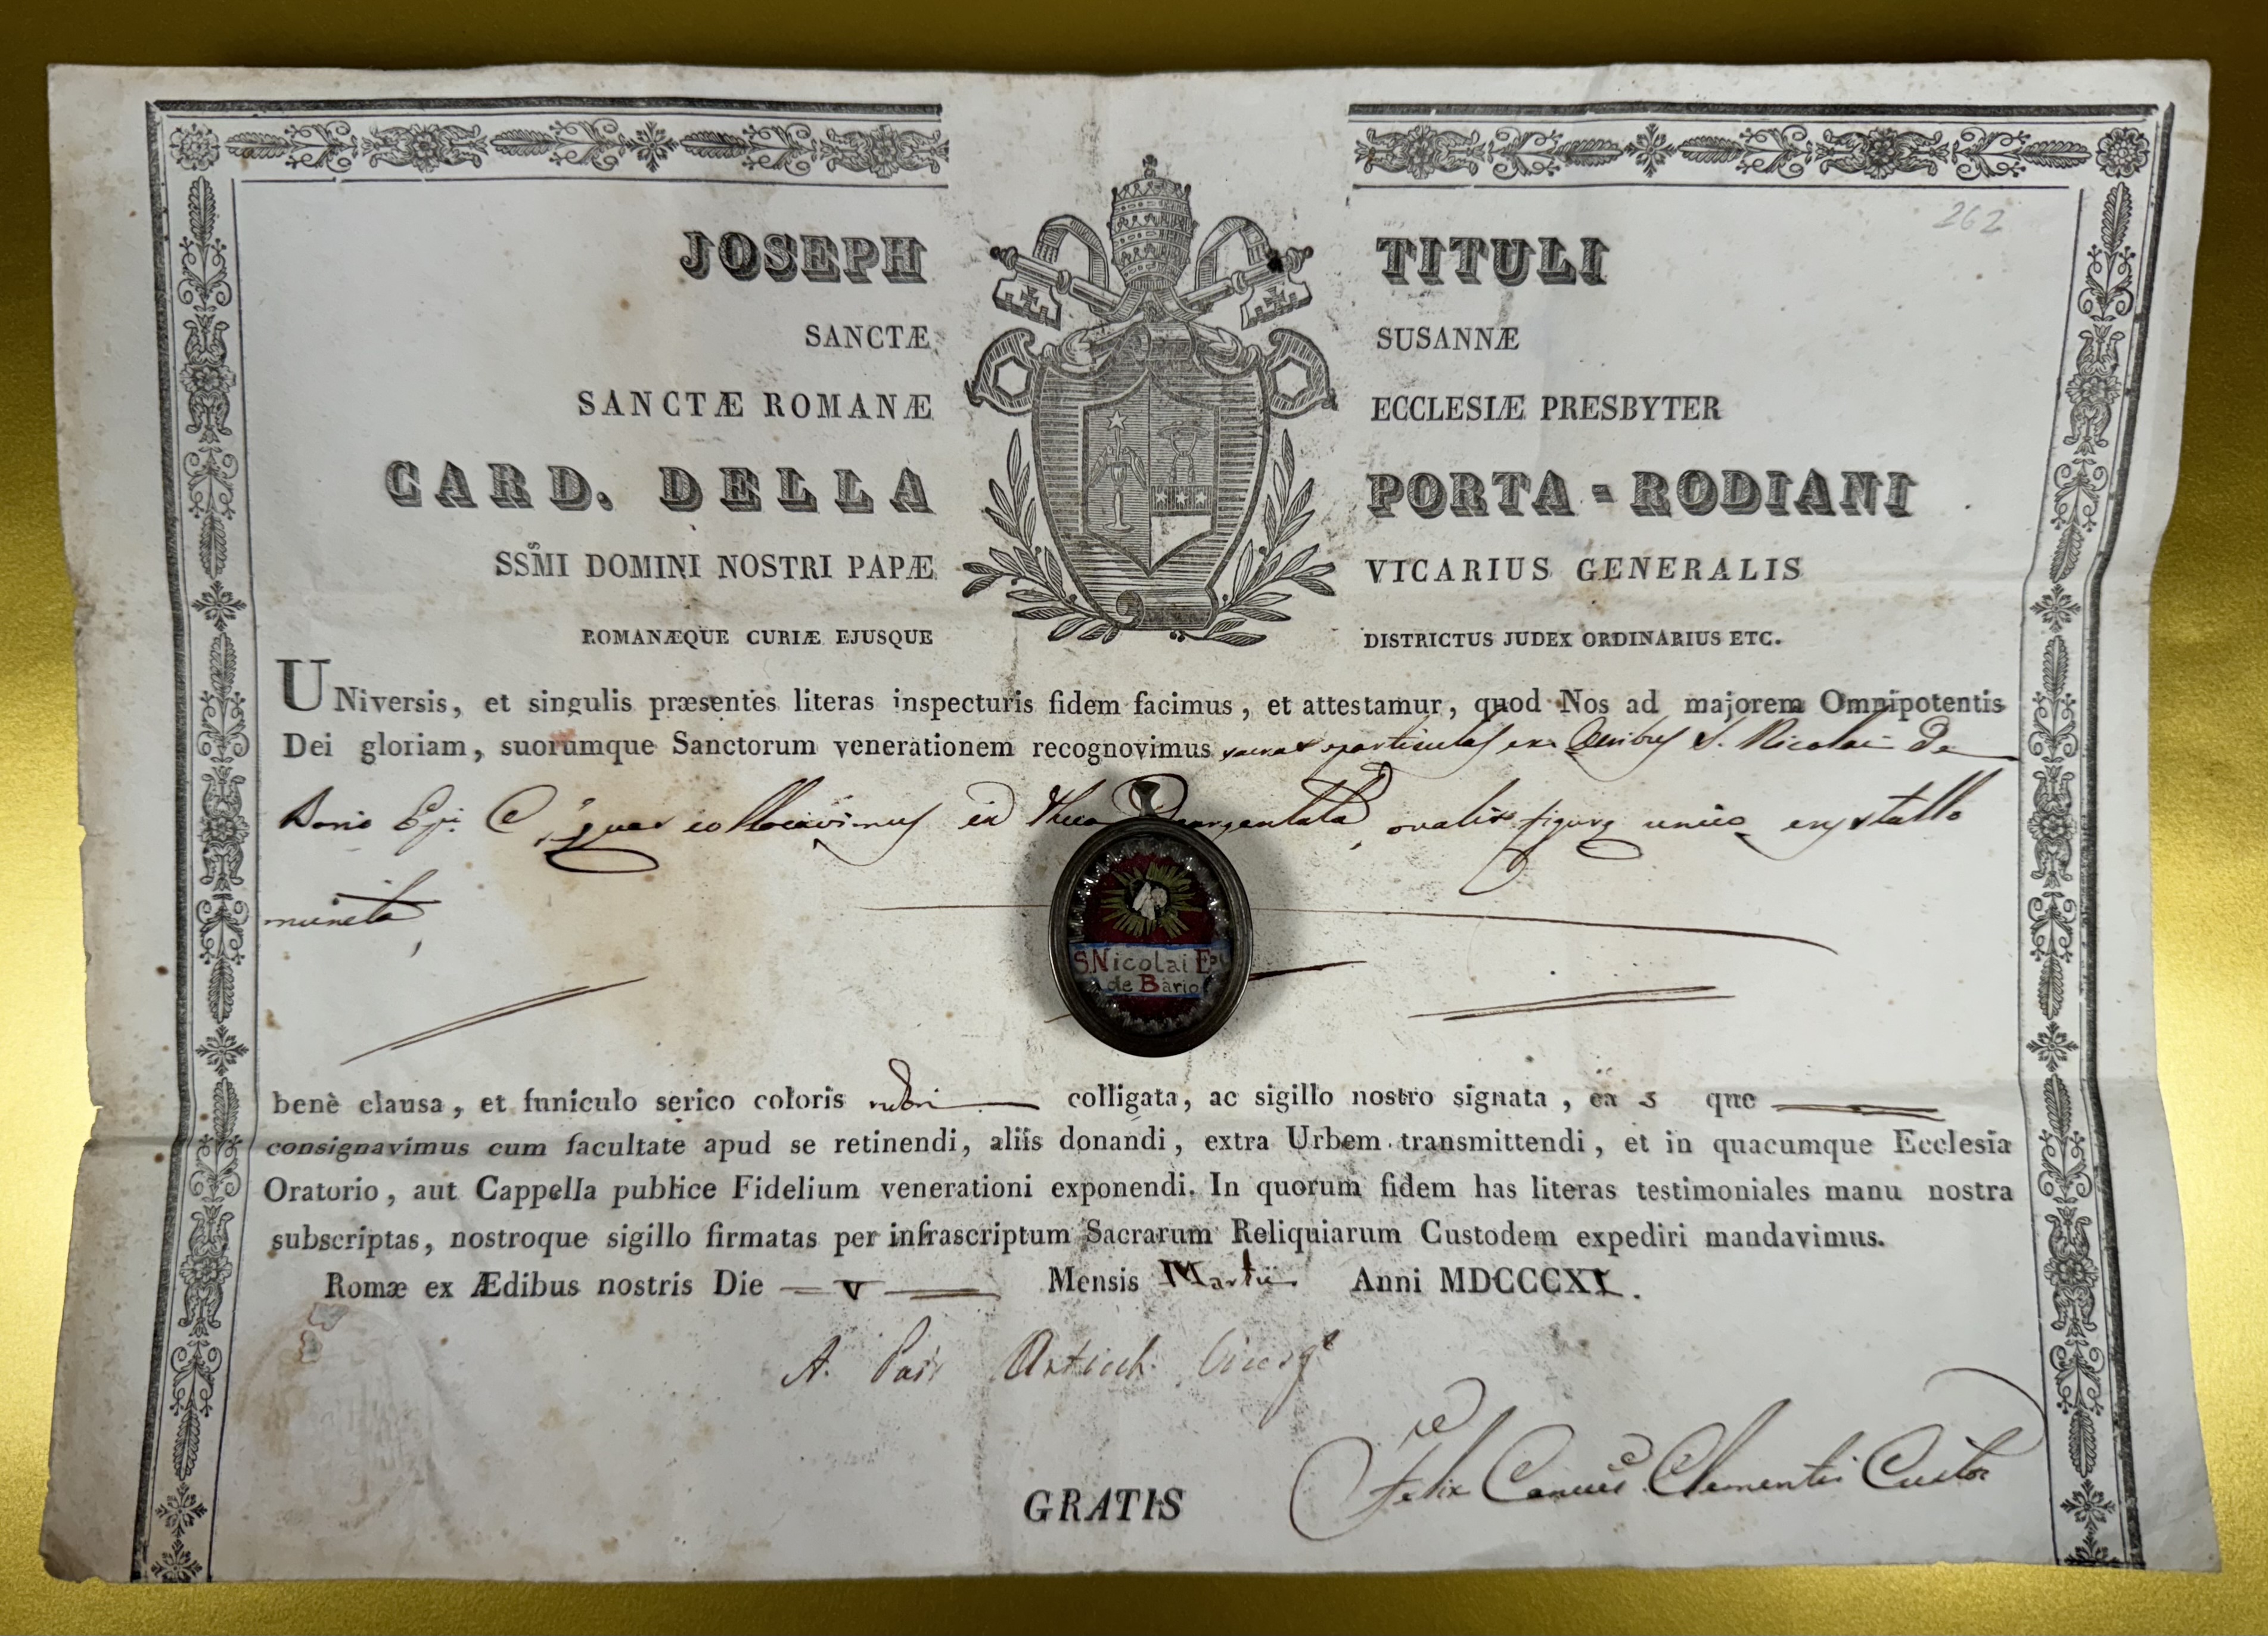 262
JOSEPH TITULI
SANCTÆ SUSANNÆ
SANCTÆ ROMANÆ ECCLESIÆ PRESBYTER
CARD. DELLA PORTA - RODIANI
SSM̃I DOMINI NOSTRI PAPÆ VICARIUS GENERALIS
ROMANÆQUE CURIÆ EJUSQUE DISTRICTUS JUDEX ORDINARIUS ETC.
UNiversis, et singulis præsentes literas inspecturis fidem facimus, et attestamur, quod Nos ad majorem Omnipotentis
Dei gloriam, suorumque Sanctorum venerationem recognovimus sacras particulas ex Ossibus S. Nicolai de
Bario Epi. C, quas collocavimus in theca deargentata, ovalis figuræ unico crystallo
munita,
S. Nicolai Epi
de Bario
benè clausa, et funiculo serico coloris rubri colligata, ac sigillo nostro signata, que
consignavimus cum facultate apud se retinendi, aliis donandi, extra Urbem transmittendi, et in quacumque Ecclesia
Oratorio, aut Cappella publice Fidelium venerationi exponendi. In quorum fidem has literas testimoniales manu nostra
subscriptas, nostroque sigillo firmatas per infrascriptum Sacrarum Reliquiarum Custodem expediri mandavimus.
Romæ ex Ædibus nostris Die V Mensis Martii Anni MDCCCXL.
A.
Felix Clementi Custos
GRATIS